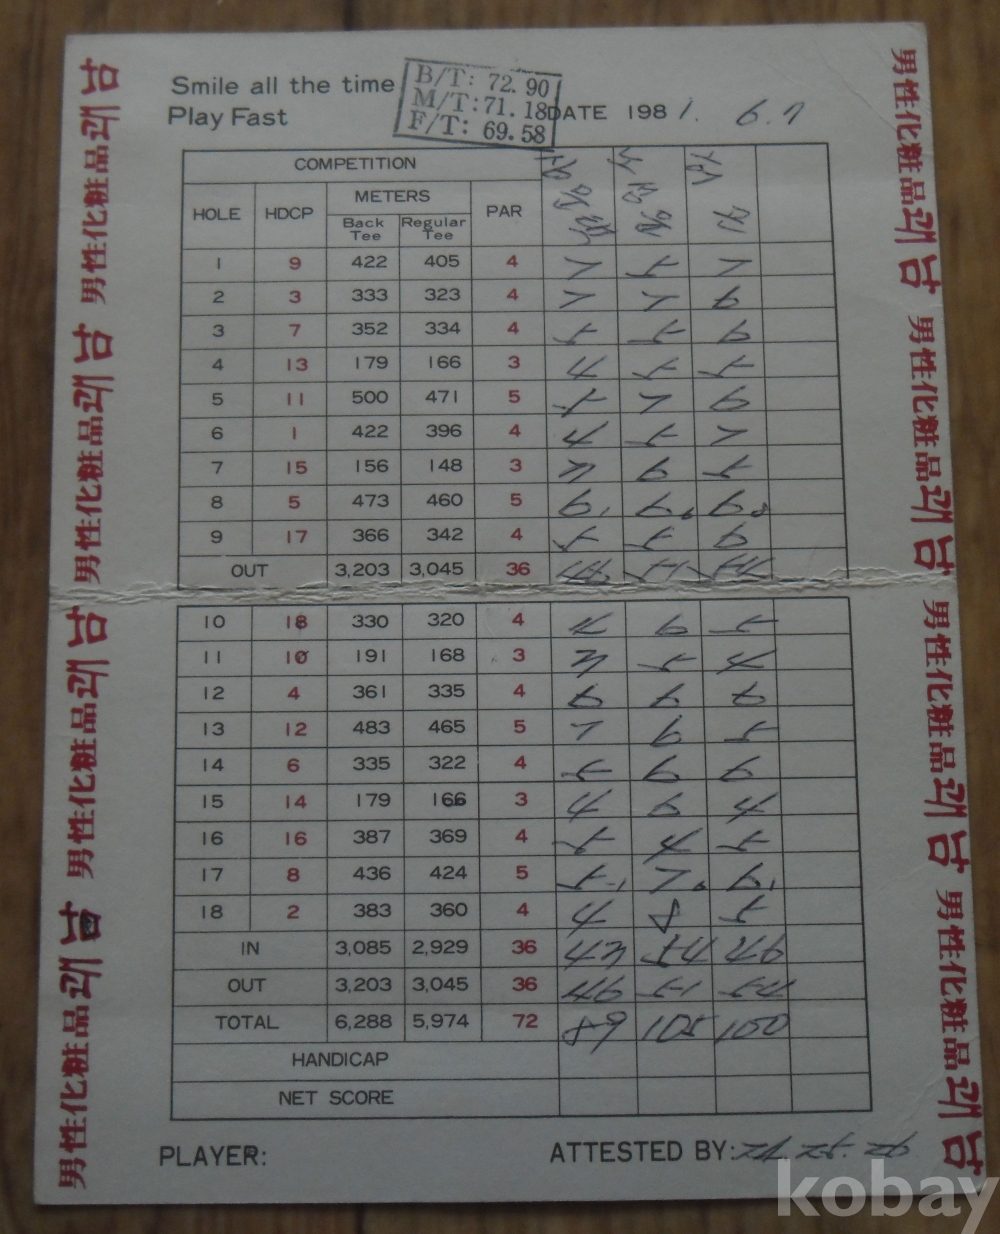 Smile all the time
Play Fast
B/T: 72.90
M/T: 71.18
F/T: 69.58
DATE 1981. 6. 7
COMPETITION
HOLE HDCP METERS PAR
Back Tee Regular Tee
1 9 422 405 4 7 5 7
2 3 333 323 4 7 7 6
3 7 352 334 4 5 5 6
4 13 179 166 3 4 5 5
5 11 500 471 5 5 7 6
6 1 422 396 4 4 5 7
7 15 156 148 3 3 6 5
8 5 473 460 5 6 6 6
9 17 366 342 4 5 5 6
OUT 3,203 3,045 36 46 51 54
10 18 330 320 4 5 6 5
11 10 191 168 3 3 5 4
12 4 361 335 4 6 6 6
13 12 483 465 5 7 6 5
14 6 335 322 4 5 6 6
15 14 179 166 3 4 6 4
16 16 387 369 4 5 4 5
17 8 436 424 5 5 7 6
18 2 383 360 4 4 8 5
IN 3,085 2,929 36 43 54 46
OUT 3,203 3,045 36 46 51 54
TOTAL 6,288 5,974 72 89 105 100
HANDICAP
NET SCORE
PLAYER:
ATTESTED BY:
男性化粧品쾌남
男性化粧品쾌남
男性化粧品쾌남
男性化粧品쾌남
男性化粧品쾌남
男性化粧品쾌남
男性化粧品쾌남
男性化粧品쾌남
kobay